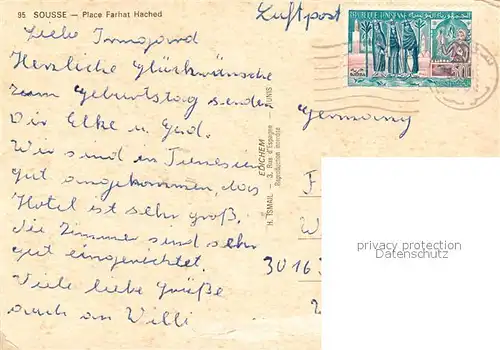 95 SOUSSE — Place Farhat Hached
Luftpost
REPUBLIQUE TUNISIENNE
Liebe Irmgard
Herzliche Glückwünsche
zum Geburtstag senden
Dir Elke u. Gad.
Wir sind in Tunesien
gut angekommen, das
Hotel ist sehr groß.
die Zimmer sind sehr
gut eingerichtet.
Viele liebe Grüße
auch an Willi
H. ISMAIL — 3, Rue d'Espagne — TUNIS
EDICHEM
Reproduction interdite
Germany
F
W
3016
privacy protection
Datenschutz